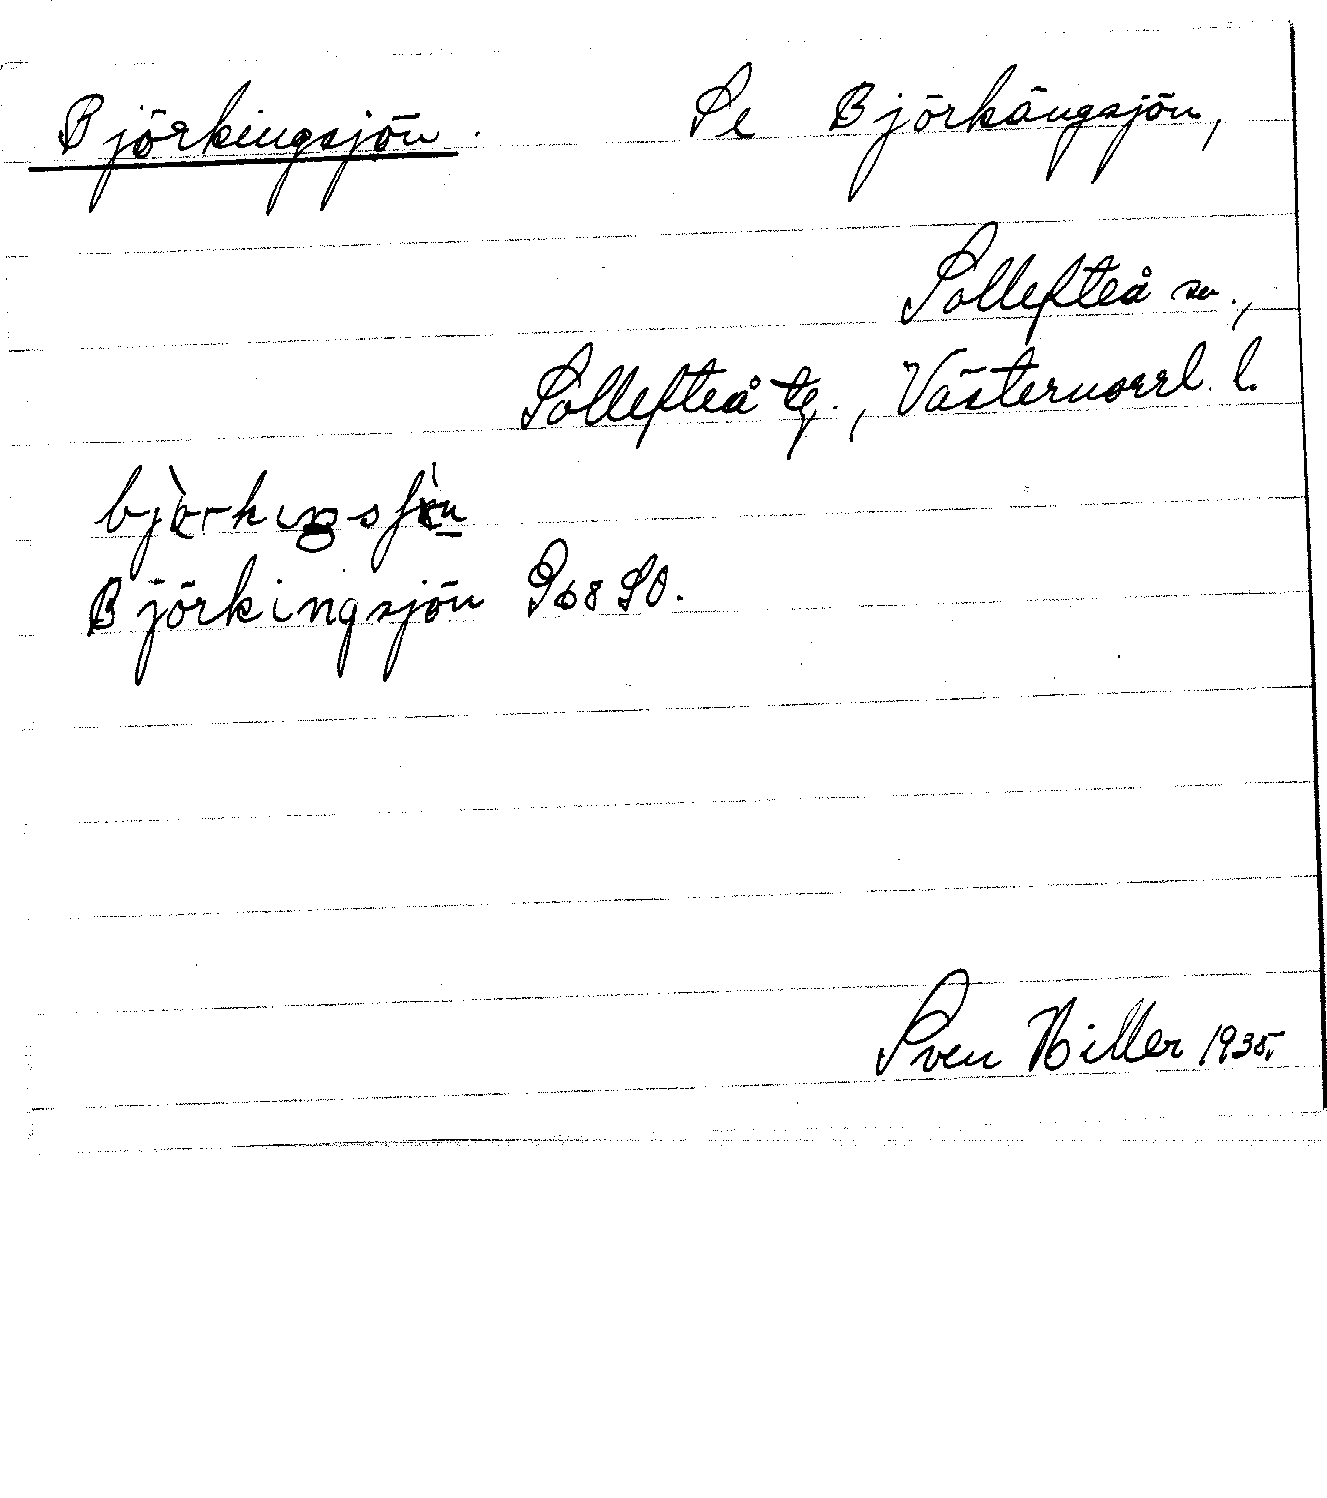 Björkingsjön. Se Björkängsjön,
Sollefteå sn.,
Sollefteå tg., Västernorrl. l.
Björkingsjön G68 SO.
Sven Hiller 1935.